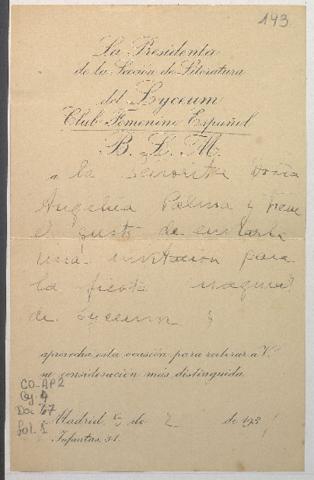 143
La Presidenta
de la Sección de Literatura
del Lyceum
Club Femenino Español
B. L. M.
a la Señorita Doña
Angelina Palma y tiene
el gusto de enviarle
una invitación para
la fiesta
de Lyceum y
aprovecha esta ocasión para reiterar a V.
su consideración más distinguida.
CO-AP2
Cy. 4
Doc 67
fol. 1
Madrid, de de 193
Infantas, 31.